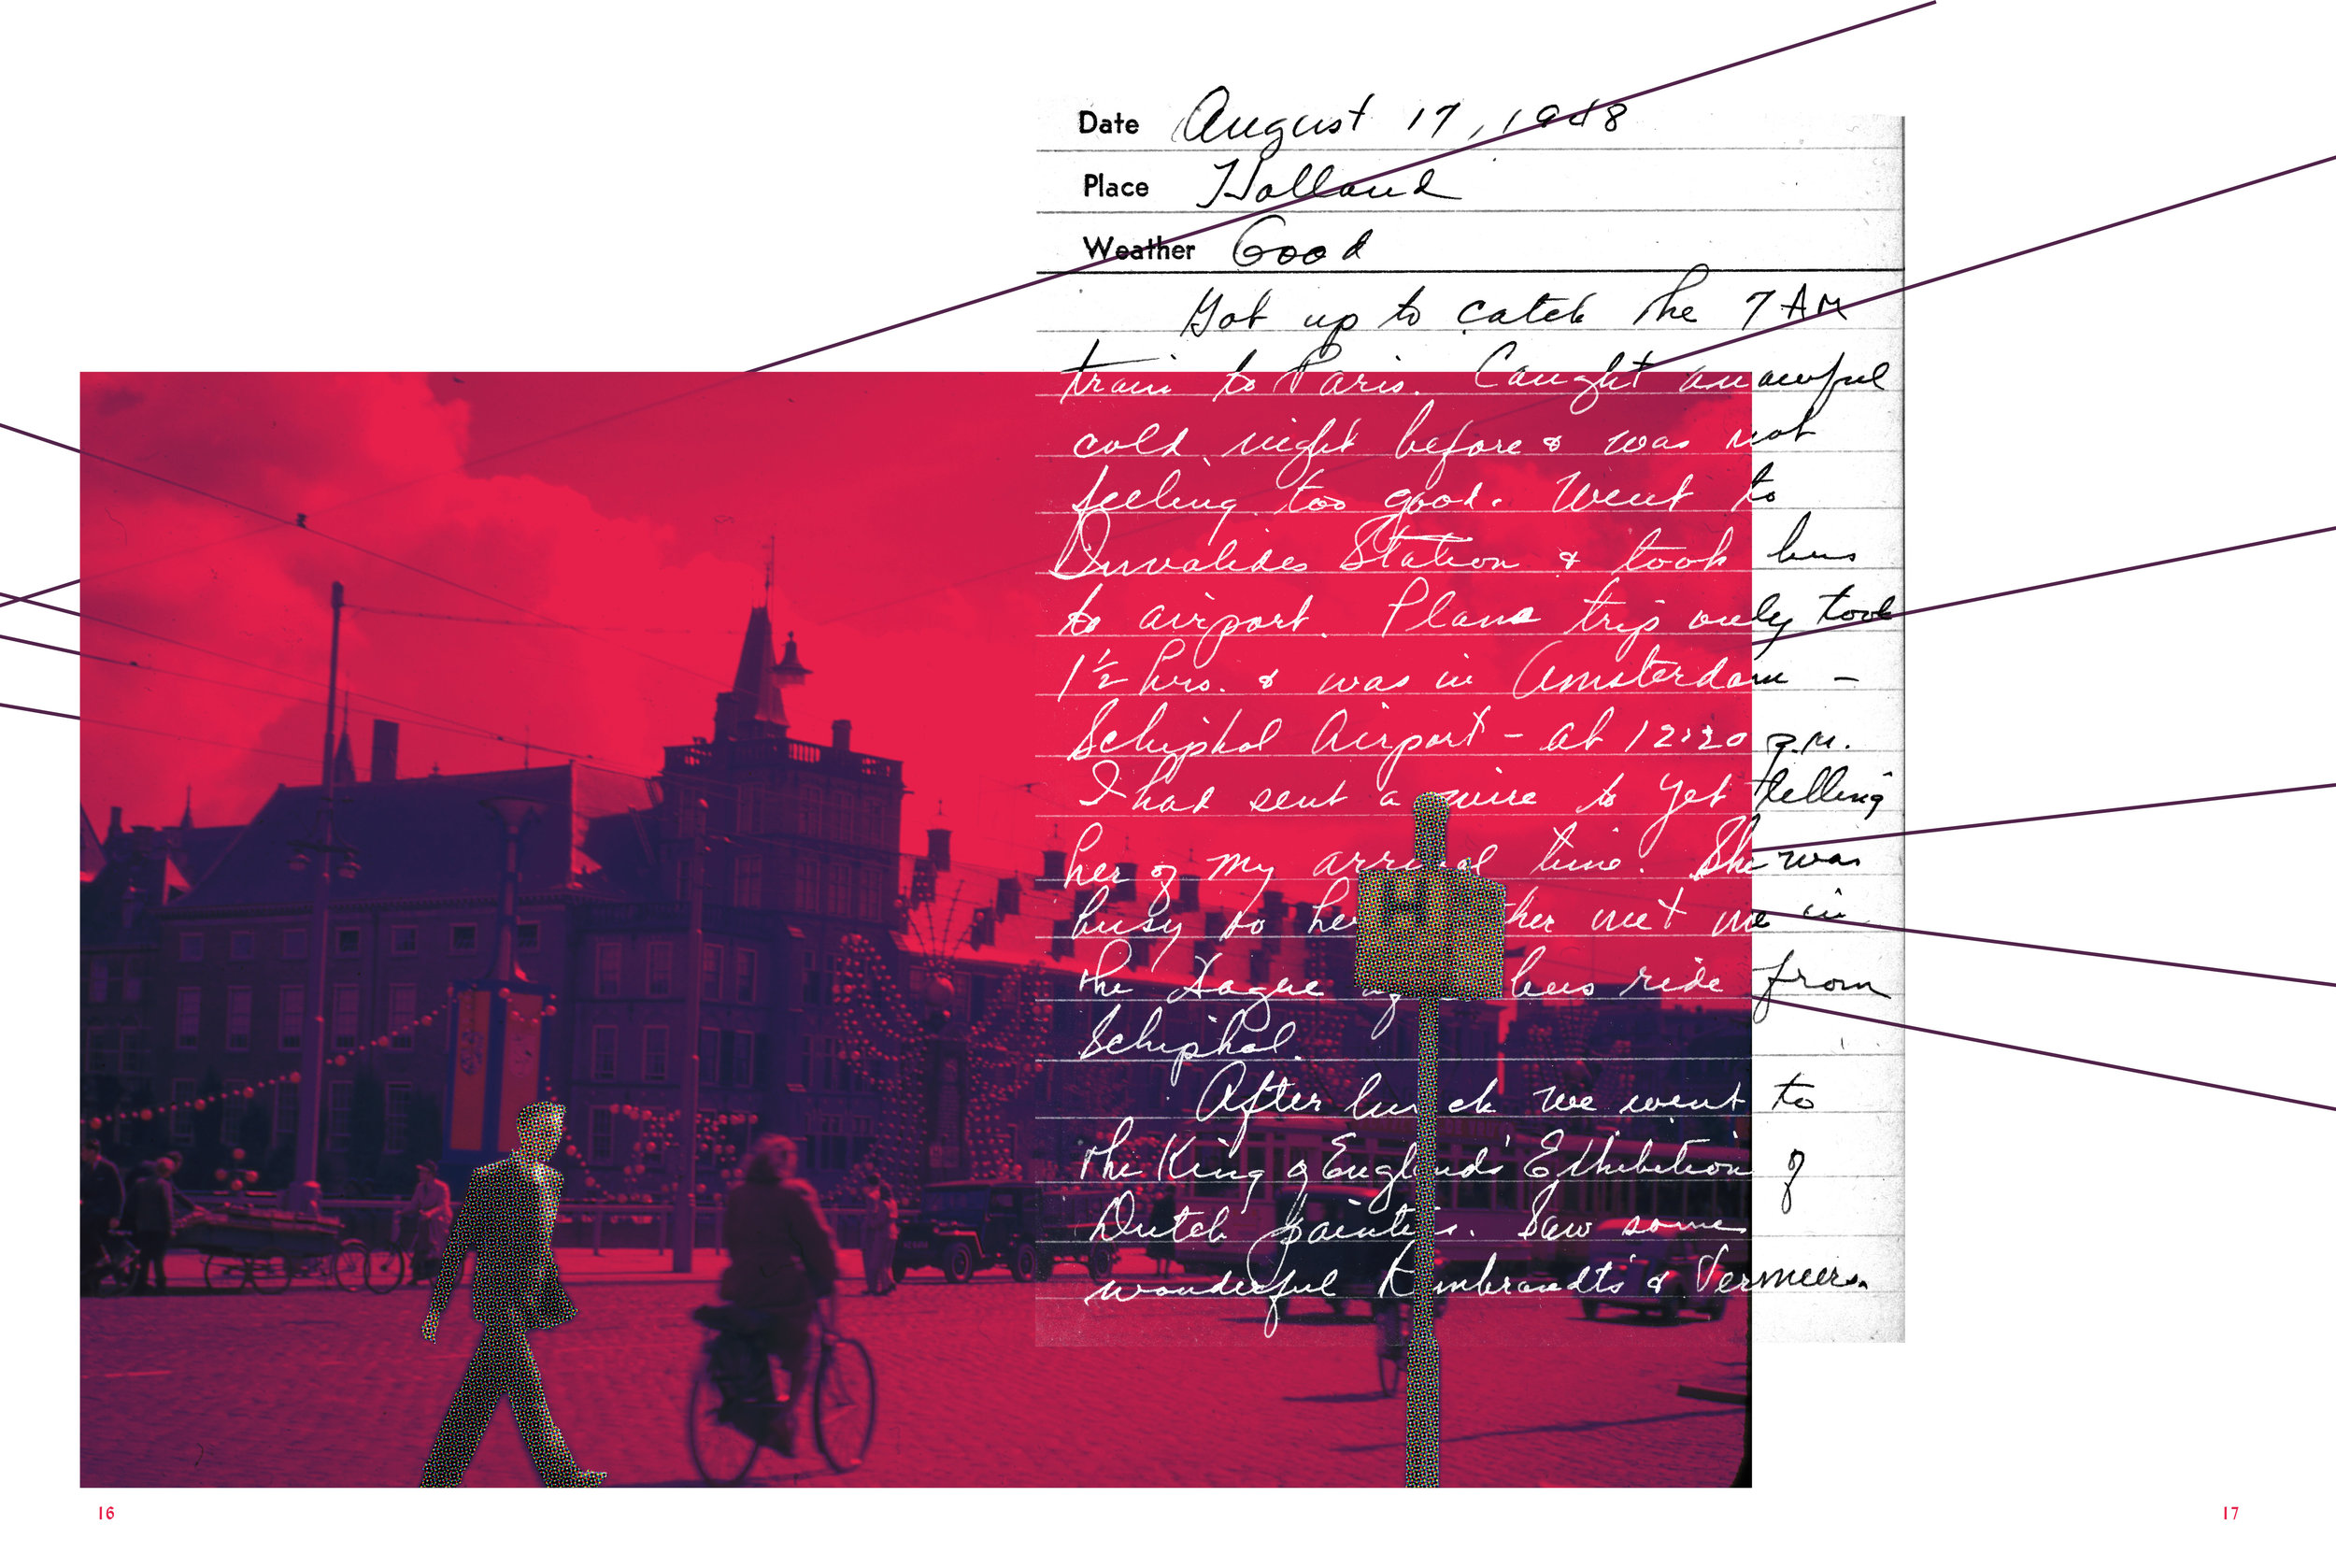 Date August 17, 1948
Place Holland
Weather Good
Got up to catch the 7 AM
train to Paris. Caught an awful
cold night before & was not
feeling too good. Went to
Invalides Station & took bus
to airport. Plane trip only took
1½ hrs. & was in Amsterdam -
Schiphol Airport - at 12:20 P.M.
I had sent a wire to Yet telling
her of my arrival time. She was
busy so her ther met me in
the Hague bus ride from
Schiphol.
After lunch we went to
the King of England's Exhibition of
Dutch painters. Saw some
wonderful Rembrandts & Vermeers.
H
16
17